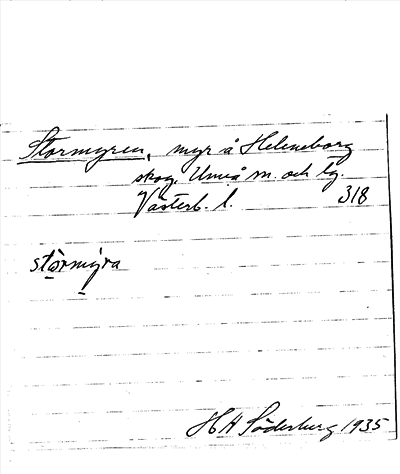 Stormyren, myr å Heleneborg
skog, Umeå sn. och tg.
Västerb. l. 318
stòrmýra
HA Söderburg 1935